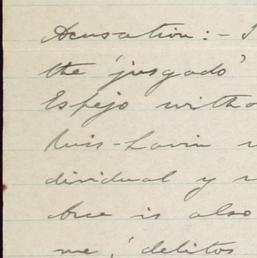 Acusation: - I
the 'jusgado'
Espejo witho
Ruis-Lavin
dividual y
is also
me, 'delitos